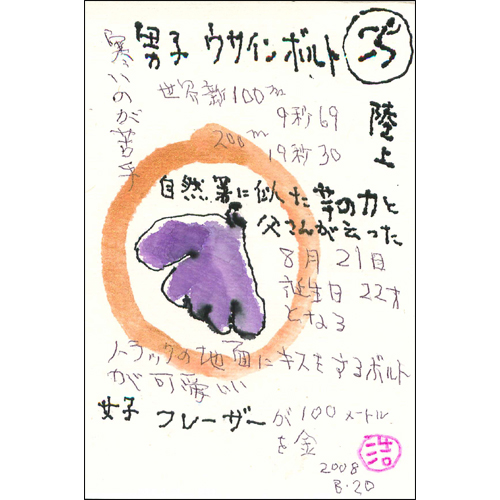 男子 ウサインボルト
陸上
寒いのが苦手
世界新100m
9秒69
200m
19秒30
自然薯に似た芋の力と
父さんが云った
8月21日
誕生日 22才
となる
トラックの地面にキスをするボルト
が可愛い
女子 フレーザーが100メートル
を金
浩
2008
8.20